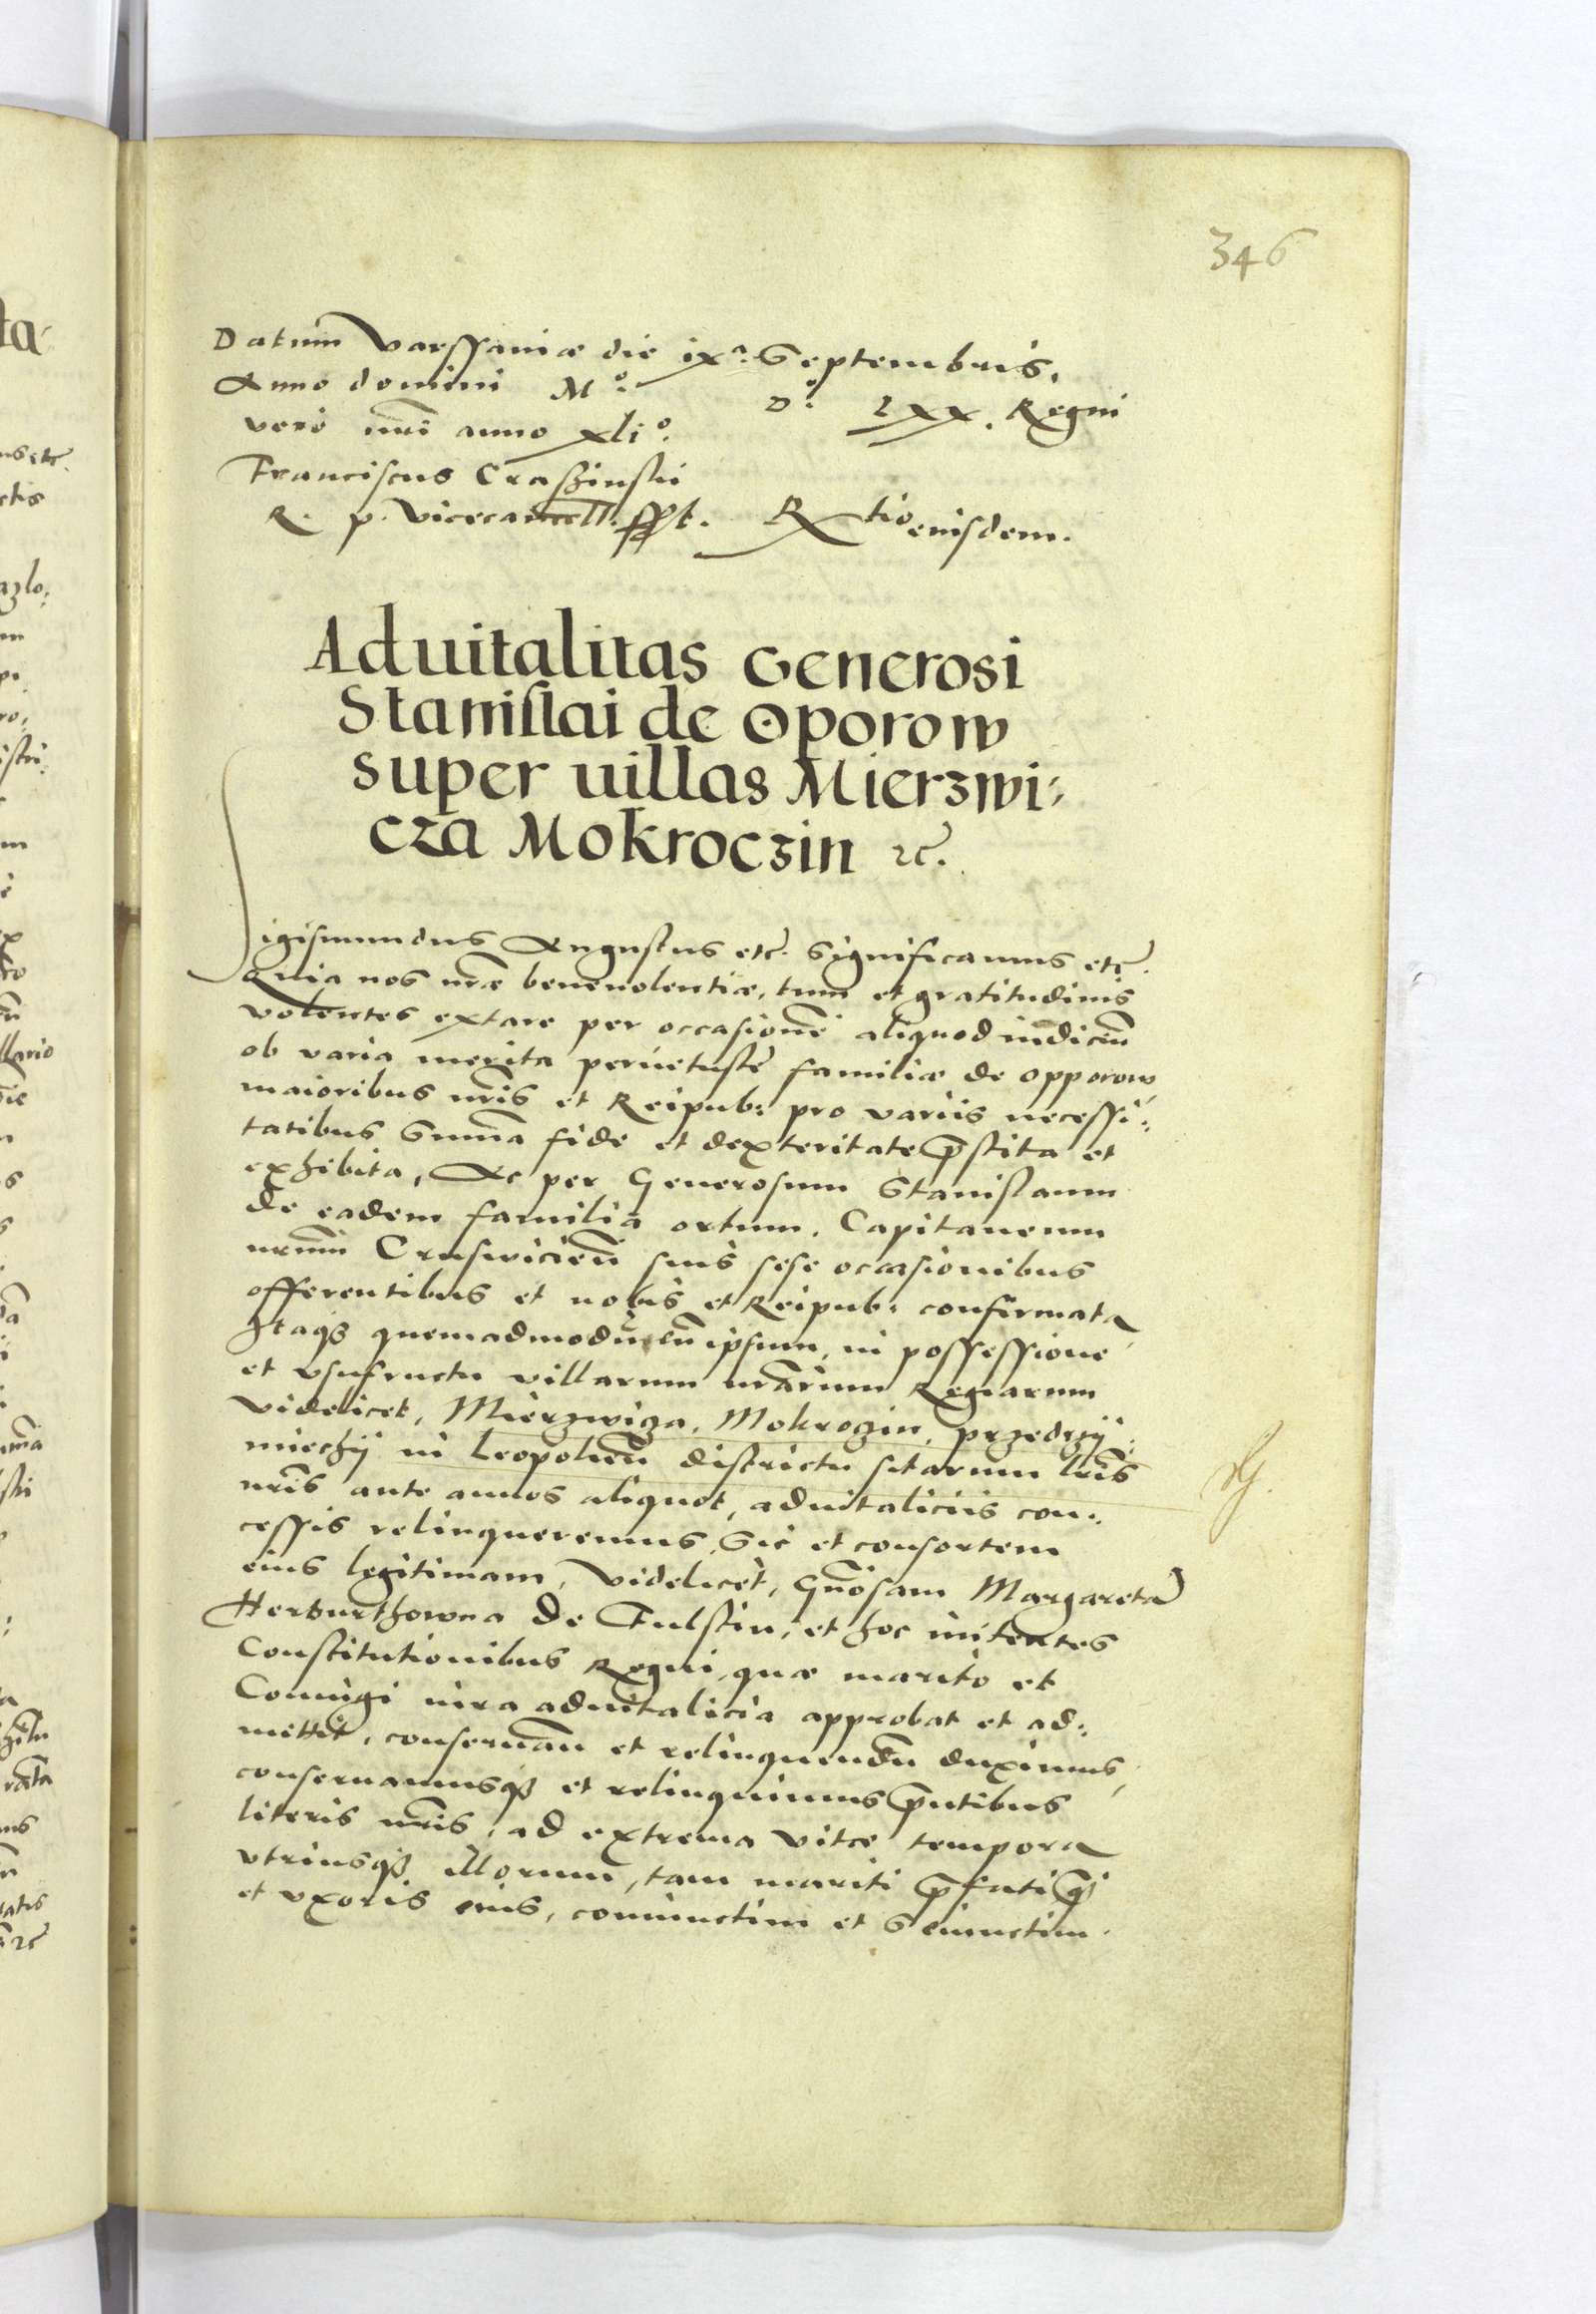 346
Datum Varssaniæ die ixª. Septembris,
Anno domini Mº. Dº. Lxx. Regni
vero nrĩ anno xliº.
Franciscus Craszinski
R. p. Vicecancell. sspt. Rtio eiusdem.
Aduitalitas Generosi
Stanislai de Oporow
super uillas Mierzwi:
cza Mokroczin ⁊c̃.
Sigismundus Augustus etc̃. Significamus etc̃.
Quia nos nræ beneuolentiæ, tum et gratitudinis
volentes extare per occasionẽ aliquod indiciũ
ob varia merita peruetustę familiæ de Opporow
maioribus nrĩs et Reipub: pro variis necessi:
tatibus Summa fide et dexteritate p̃stita et
exhibita, Ac per Generosum Stanislaum
de eadem familia ortum, Capitaneum
nrũm Crusuicieñ suis sese occasionibus
offerentibus et nobis et Reipub: confirmata
Itaqʒ quemadmodũ eũ ipsum, in possessione
et vsufructu villarum nrãrum Regiarum
Videlicet, Mierzwicza, Mokroczin, przedrzÿ:
miechÿ in Leopolieñ districtu sitarum lrĩs
nrĩs ante annos aliquot, aduitaliciis con:
cessis relinqueremus, Sic et consortem
eius legitimam, Videlicet, Gñosam Margaretã
Herburthowna de Fulstin, et hoc initentes
Constitutionibus Regni, quæ marito et
Coniugi iura aduitalicia approbat et ad:
mittit, conseruañ et relinquendũ duximus,
conseruamusqʒ et relinquimus p̃ntibus
literis nrĩs, ad extrema vitæ tempora
vtriusqʒ illorum, tam mariti p̃fati q̃
et vxoris eius, coniunctim et Seiunctim.